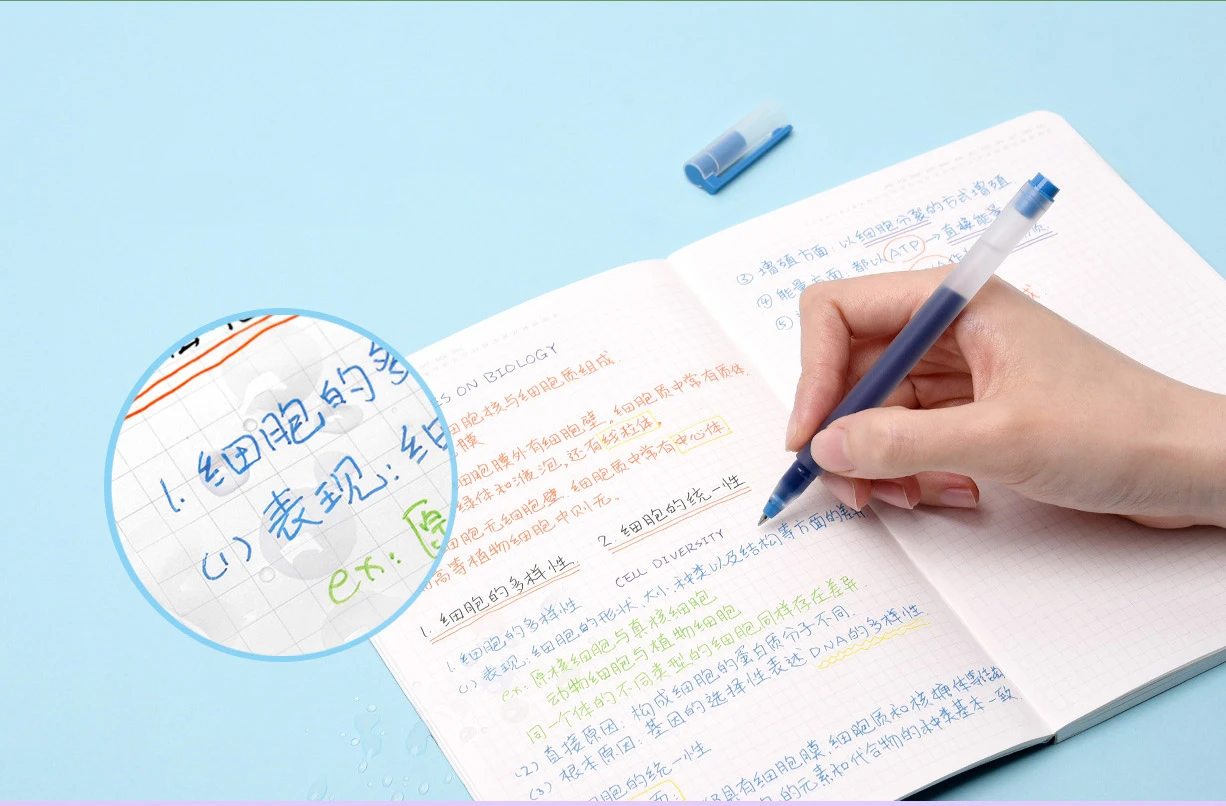 1. 细胞的多
(1) 表现: 细
ex: 原
ES ON BIOLOGY
细胞核与细胞质组成.
膜
细胞膜外有细胞壁. 细胞质中常有质体.
绿体和液泡, 还有线粒体.
细胞无细胞壁. 细胞质中常有中心体
高等植物细胞中则无.
1. 细胞的多样性
2. 细胞的统一性
CELL DIVERSITY
1. 细胞的多样性
(1) 表现: 细胞的形状. 大小. 种类以及结构等方面的差异
ex: 原核细胞与真核细胞
动物细胞与植物细胞
同一个体的不同类型的细胞同样存在差异
(2) 直接原因: 构成细胞的蛋白质分子不同.
(3) 根本原因: 基因的选择性表达 DNA的多样性.
细胞的统一性
具有细胞膜. 细胞质和核糖体
的元素和化合物的种类基本一致
③ 增殖方面: 以细胞分裂的方式增殖
④ 能量方面: 都以ATP→直接能量
⑤